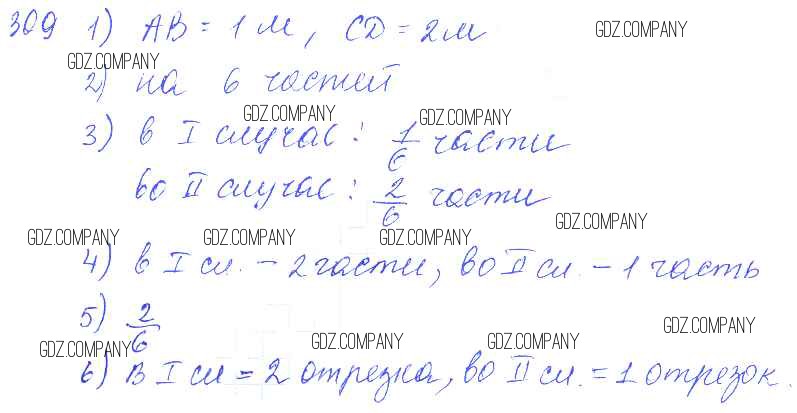 309 1) AB = 1 м, CD = 2 м
GDZ.COMPANY
GDZ.COMPANY
2) на 6 частей
GDZ.COMPANY GDZ.COMPANY
3) в I случае: 1/6 части
во II случае: 2/6 части
GDZ.COMPANY
GDZ.COMPANY GDZ.COMPANY GDZ.COMPANY
4) в I сл. – 2 части, во II сл. – 1 часть
5) 2/6
GDZ.COMPANY
GDZ.COMPANY GDZ.COMPANY GDZ.COMPANY
6) в I сл = 2 отрезка, во II сл. = 1 отрезок.